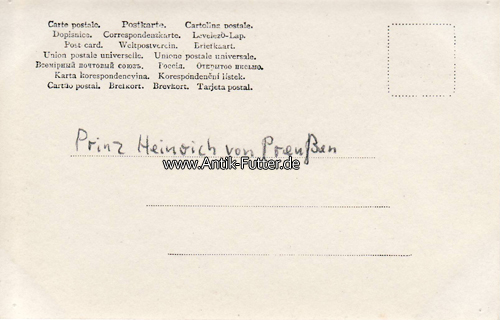 Carte postale. Postkarte. Cartolina postale.
Dopisnica. Correspondenzkarte. Levelező-Lap.
Post card. Weltpostverein. Briefkaart.
Union postale universelle. Unione postale universale.
Всемірный почтовый союзъ. Россія. Открытое письмо.
Karta korespondencyjna. Korespondenční lístek.
Cartão postal. Brefkort. Brevkort. Tarjeta postal.
Prinz Heinrich von Preußen
www.Antik-Futter.de